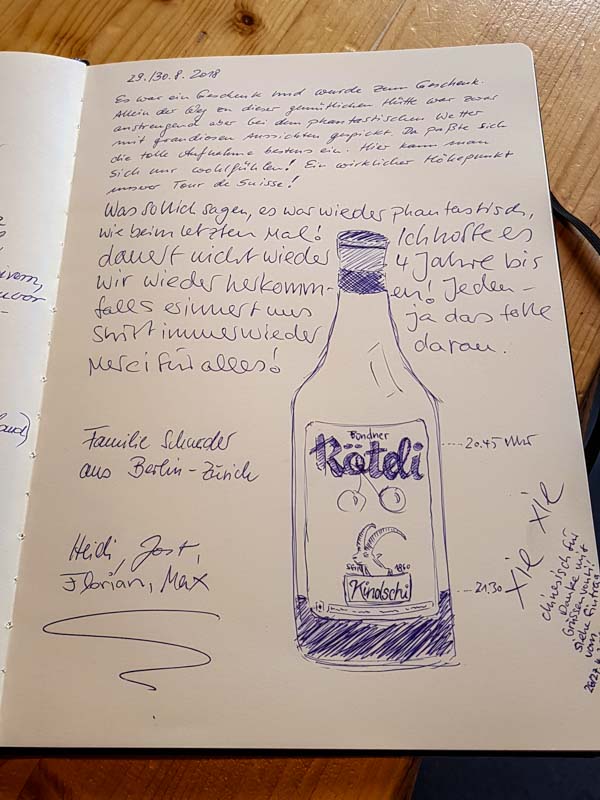 29./30.8. 2018
Es war ein Geschenk und wurde zum Geschenk.
Allein der Weg zu dieser gemütlichen Hütte war zwar
anstrengend aber bei dem phantastischen Wetter
mit grandiosen Aussichten gespickt. Da paßte sich
die tolle Aufnahme bestens ein. Hier kann man
sich nur wohlfühlen! Ein wirklicher Höhepunkt
unserer Tour de Suisse!
Was soll ich sagen, es war wieder phantastisch,
wie beim letzten Mal! Ich hoffe es
dauert nicht wieder 4 Jahre bis
wir wieder herkomm- en! Jeden-
falls erinnert uns ja das tolle
Shirt immer wieder daran.
Merci für alles!
Familie Schroder
aus Berlin-Zürich
Heidi, Jost,
Florian, Max
Bündner
Röteli
SEIT 1860
Kindschi
20.45 Uhr
21.30
xie xie
chinesisch für
Danke mit
Größenwahn!
siehe Eintrag
vom